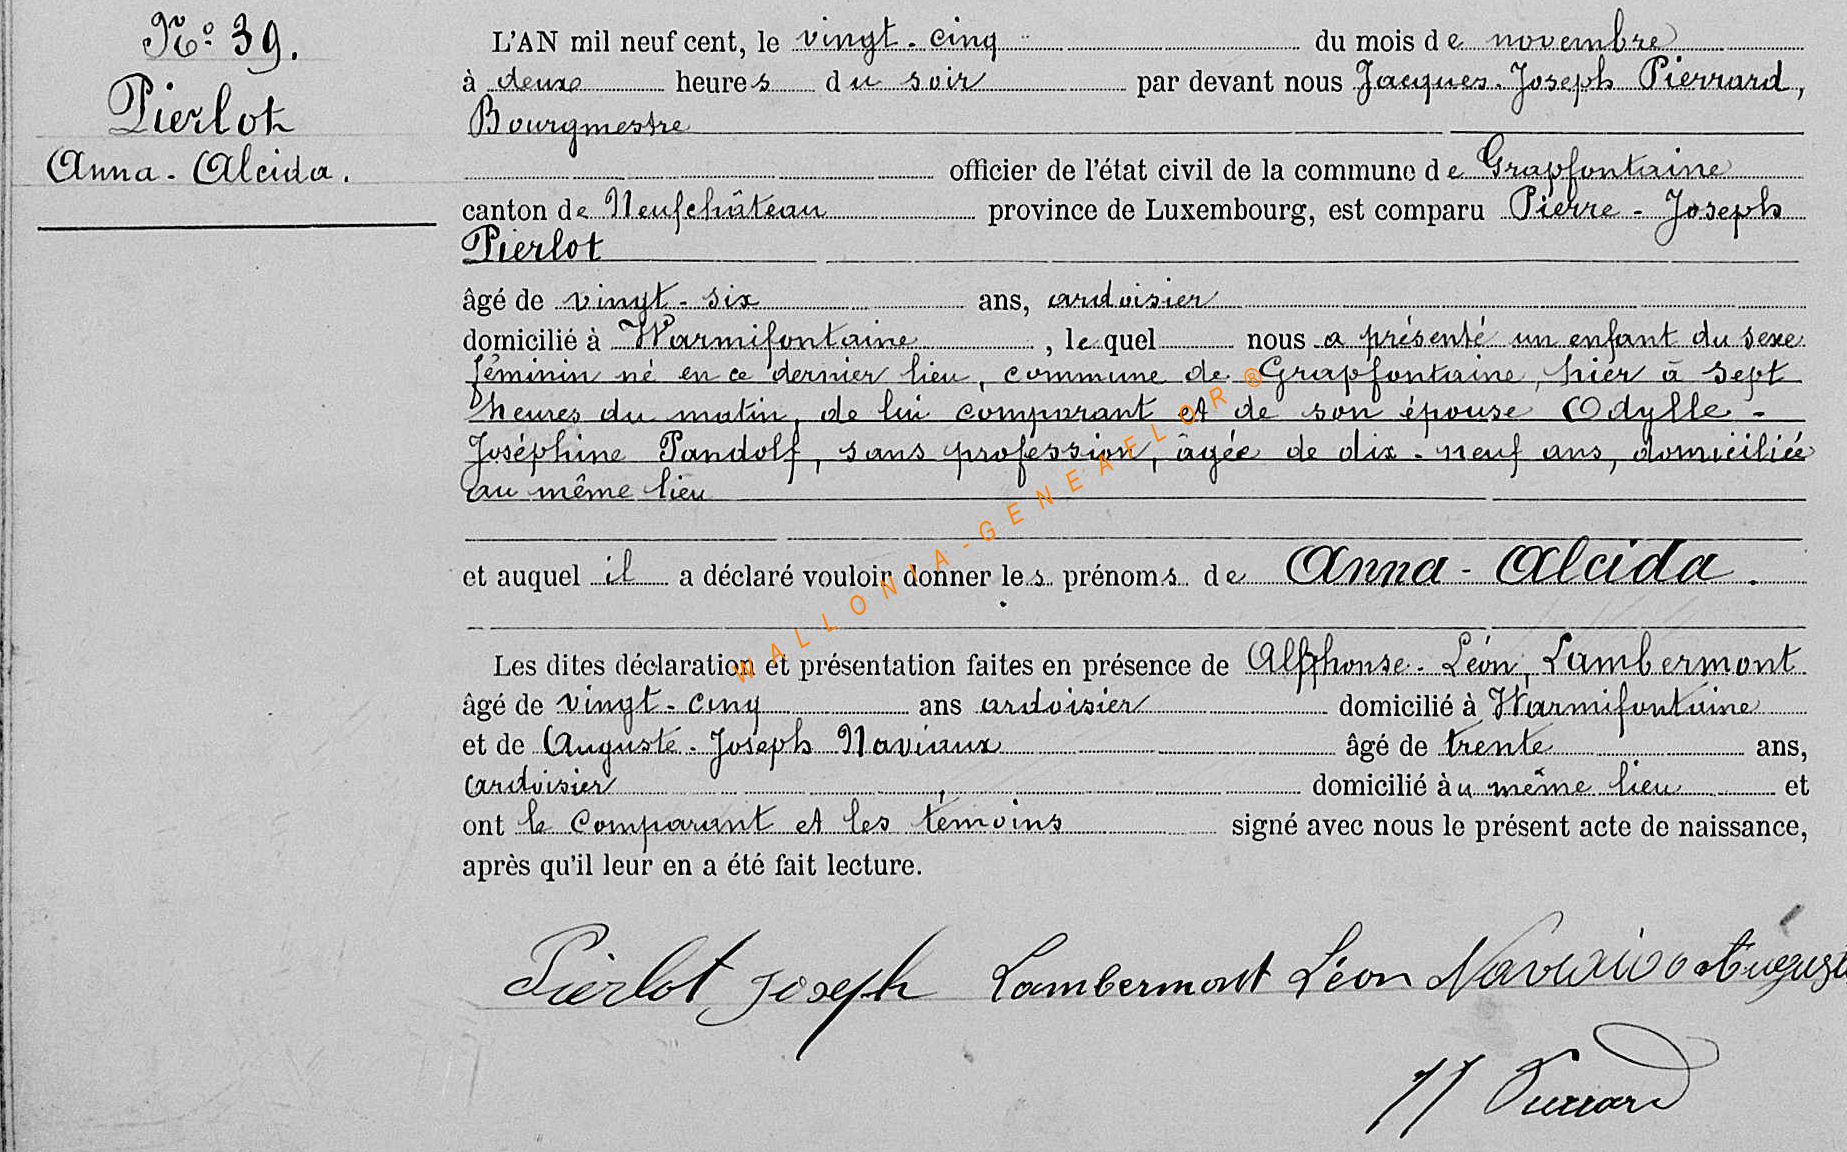 No. 39.
Pierlot
Anna-Alcida.
L'AN mil neuf cent, le vingt-cinq du mois de novembre
à deux heures du soir par devant nous Jacques-Joseph Pierrard,
Bourgmestre
officier de l'état civil de la commune de Grapfontaine
canton de Neufchâteau province de Luxembourg, est comparu Pierre-Joseph
Pierlot
âgé de vingt-six ans, ardoisier
domicilié à Warmifontaine, lequel nous a présenté un enfant du sexe
féminin né en ce dernier lieu, commune de Grapfontaine, hier à sept
heures du matin, de lui comparant et de son épouse Odylle-
Joséphine Pandolf, sans profession, âgée de dix-neuf ans, domiciliée
au même lieu
et auquel il a déclaré vouloir donner les prénoms de Anna-Alcida.
Les dites déclaration et présentation faites en présence de Alphonse-Léon, Lambermont
âgé de vingt-cinq ans ardoisier domicilié à Warmifontaine
et de Auguste-Joseph Naviaux âgé de trente ans,
ardoisier, domicilié au même lieu et
ont le comparant et les témoins signé avec nous le présent acte de naissance,
après qu'il leur en a été fait lecture.
Pierlot Joseph Lambermont Léon Auguste
JJ Pierrard
WALLONIA-GENEAFLOR®